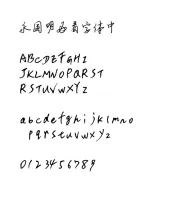 永国明为看字体中
ABCDEFGHI
JKLMNOPQRST
RSTUVWXYZ
abcdefghijklmno
pqrstuvwxyz
0123456789